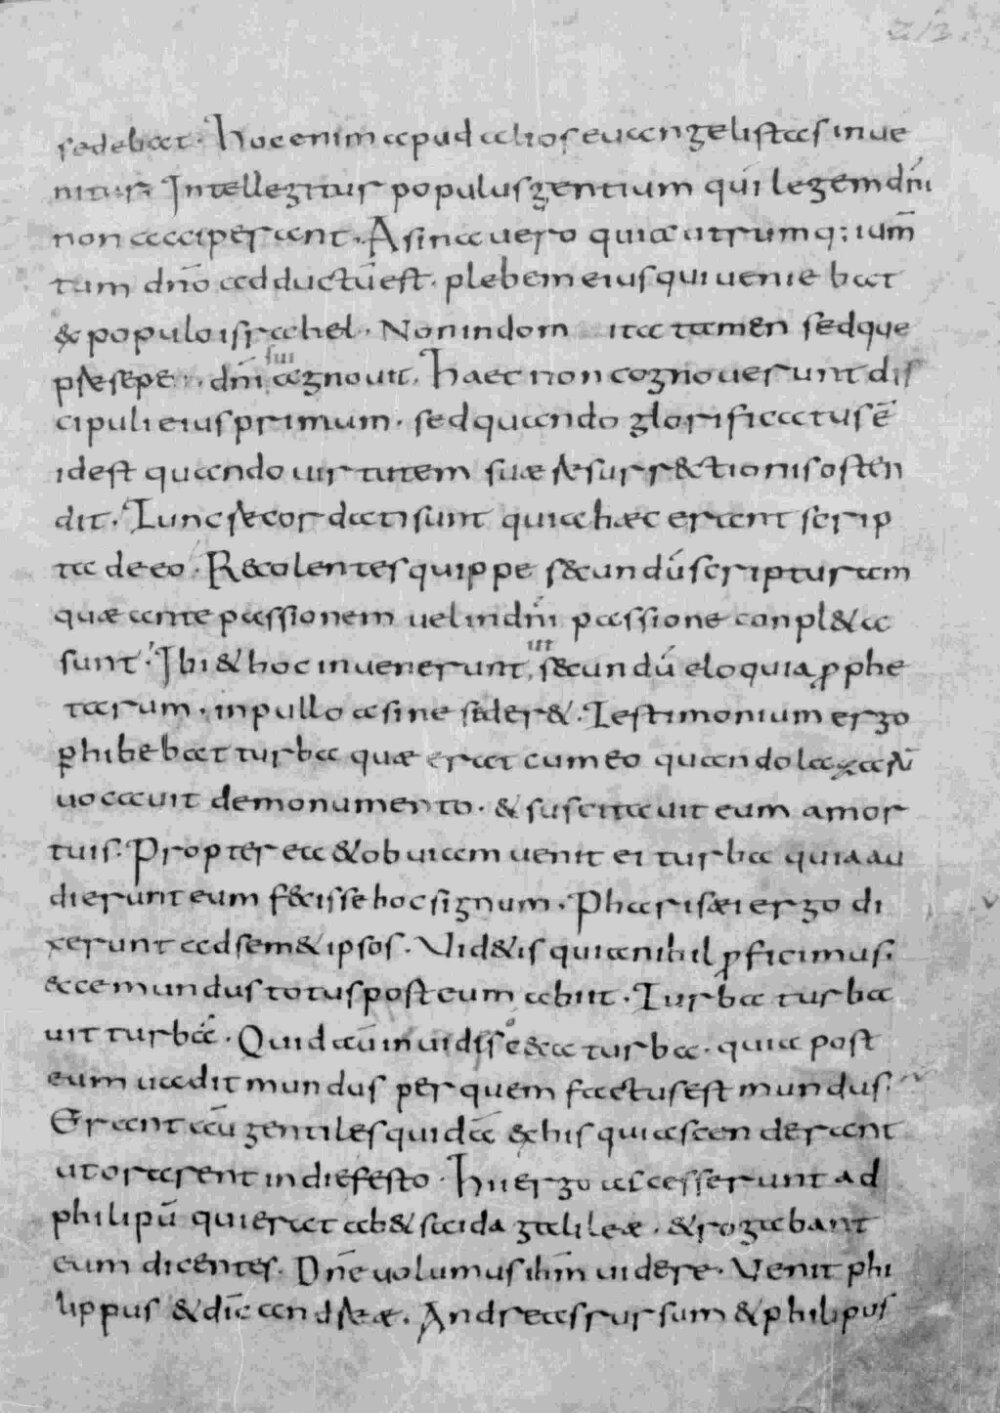 sedebat. Hoc enim apud alios euangelistas inue
nitur. Intellegitur populus gentium qui legem dn̄i
non acciperant. Asina uero quia utrumq; ium̄
tum dn̄o adductū est. plebem eius qui uenie bat
& populo israhel. Non indom ita tamen sed que
p̄sepe dn̄i sui agnouit. Haec non cognouerunt dis
cipuli eius primum. sed quando glorificatus ē
id est quando uirtutem suæ resurr&ctionis osten
dit. Tunc recordati sunt quia hæc erant scrip
ta de eo. R&colentes quippe s&cundū scripturam
quæ ante passionem uel in dn̄i passione conpl&a
sunt. Ibi & hoc inuenerunt, ut s&cundū eloquia p̱phe
tarum. in pullo asine seder&. Testimonium ergo
p̱hibebat turba quæ erat cum eo quando lazarū
uocauit de monumento. & suscitauit eum a mor
tuis. Propterea & obuiam uenit ei turba quia au
dierunt eum f&cisse hoc signum. Pharisæi ergo di
xerunt ad sem&ipsos. Uid&is quia nihil p̱ficimus.
ecce mundus totus post eum abiit. Turba turba
uit turbā. Quid aū inuidis o c&a turba. quia post
eum uadit mundus per quem factus est mundus.
Erant aū gentiles quidā & his qui ascenderant
ut orarent in die festo. Hii ergo accesserunt ad
philipū qui erat a b&saida galileæ. & rogabant
eum dicentes. Dn̄e uolumus ihm̄ uidere. Uenit phi
lippus & dic̄ andreæ. Andreas rursum & philipus